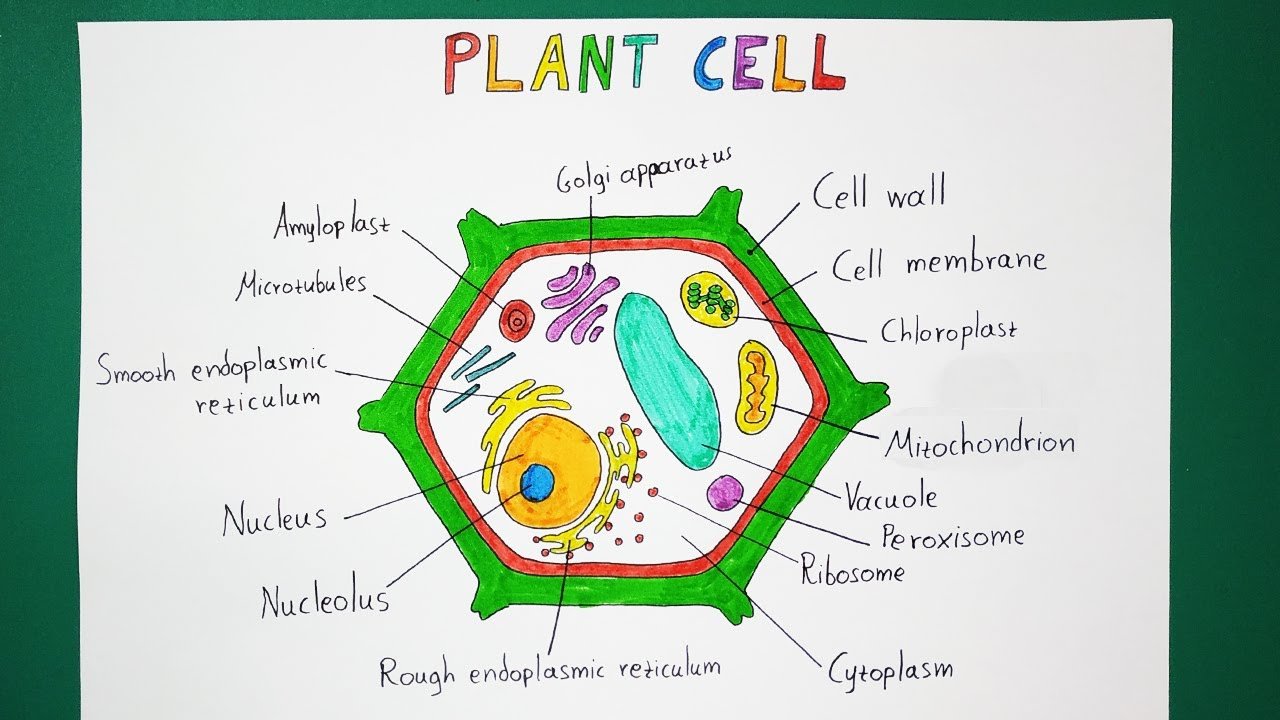 PLANT CELL
Golgi apparatus
Cell wall
Amyloplast
Cell membrane
Microtubules
Chloroplast
Smooth endoplasmic
reticulum
Mitochondrion
Vacuole
Nucleus
Peroxisome
Ribosome
Nucleolus
Rough endoplasmic reticulum
Cytoplasm